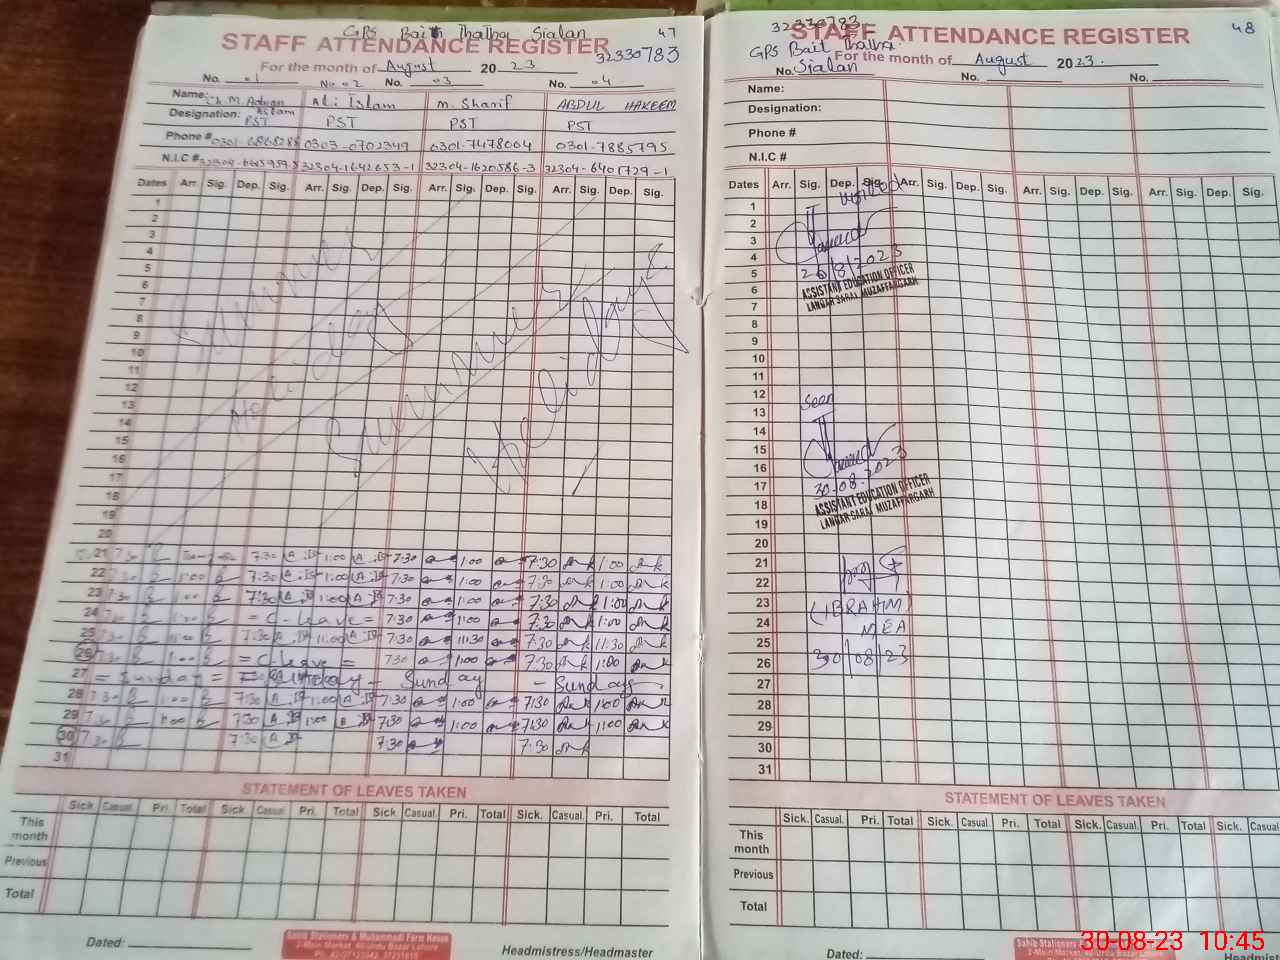 GPS Bait Thatha Sialan 47
STAFF ATTENDANCE REGISTER
32330783
For the month of August 2023
No. 01 No 02 No. 03 No. 04
Name: Ch. M. Adnan Aslam Ali Islam M. Sharif ABDUL HAKEEM
Designation: PST PST PST PST
Phone # 0303-0702349 0301-7478004 0301-7885795
N.I.C # 32304-1642653-1 32304-1620586-3 32304-6401729-1
Dates Arr. Sig. Dep. Sig. Arr. Sig. Dep. Sig. Arr. Sig. Dep. Sig. Arr. Sig. Dep. Sig.
1
2
3
4
5
6
7
8
9
10
11
12
13
14
15
16
17
18
19
20
Summer Holidays
Summer Holidays
21 7:30 7:30 1:00 7:30 1:00 7:30 1:00
22 7:30 1:00 7:30 1:00 7:30 1:00 7:30 1:00
23 7:30 1:00 7:30 1:00 7:30 1:00 7:30 1:00
24 7:30 1:00 = C-leave = 7:30 1:00 7:30 1:00
25 7:30 7:30 11:30 7:30 11:30 7:30 11:30
26 7:30 1:00 = C-leave = 7:30 1:00 7:30 1:00
27 = Sunday = = Sunday - Sunday - Sunday
28 7:30 1:00 7:30 1:00 7:30 1:00 7:30 1:00
29 7:30 1:00 7:30 1:00 7:30 1:00 7:30 1:00
30 7:30 7:30 7:30 7:30
31
STATEMENT OF LEAVES TAKEN
Sick Casual Pri. Total Sick Casual Pri. Total Sick Casual. Pri. Total Sick. Casual. Pri. Total
This month
Previous
Total
Dated:
Sahib Stationers & Muhammadi Form House
2-Main Market, 40-Urdu Bazar Lahore
Headmistress/Headmaster
32330783 48
STAFF ATTENDANCE REGISTER
GPS Bait Thatha Sialan
For the month of August 2023.
No. No. No.
Name:
Designation:
Phone #
N.I.C #
Dates Arr. Sig. Dep. Sig. Arr. Sig. Dep. Sig. Arr. Sig. Dep. Sig. Arr. Sig. Dep. Sig.
1
2
3
4
5
6
7
8
9
10
11
12
13
14
15
16
17
18
19
20
21
22
23
24
25
26
27
28
29
30
31
Visited
26/8/2023
ASSISTANT EDUCATION OFFICER
LANGAR SARAI MUZAFFARGARH
Seen
30-08-2023
ASSISTANT EDUCATION OFFICER
LANGAR SARAI MUZAFFARGARH
(IBRAHIM)
MEA
30/08/23
STATEMENT OF LEAVES TAKEN
Sick. Casual. Pri. Total Sick. Casual. Pri. Total Sick. Casual. Pri. Total Sick. Casual
This month
Previous
Total
Dated:
Sahib Stationers &
2-Main Market,
30-08-23 10:45